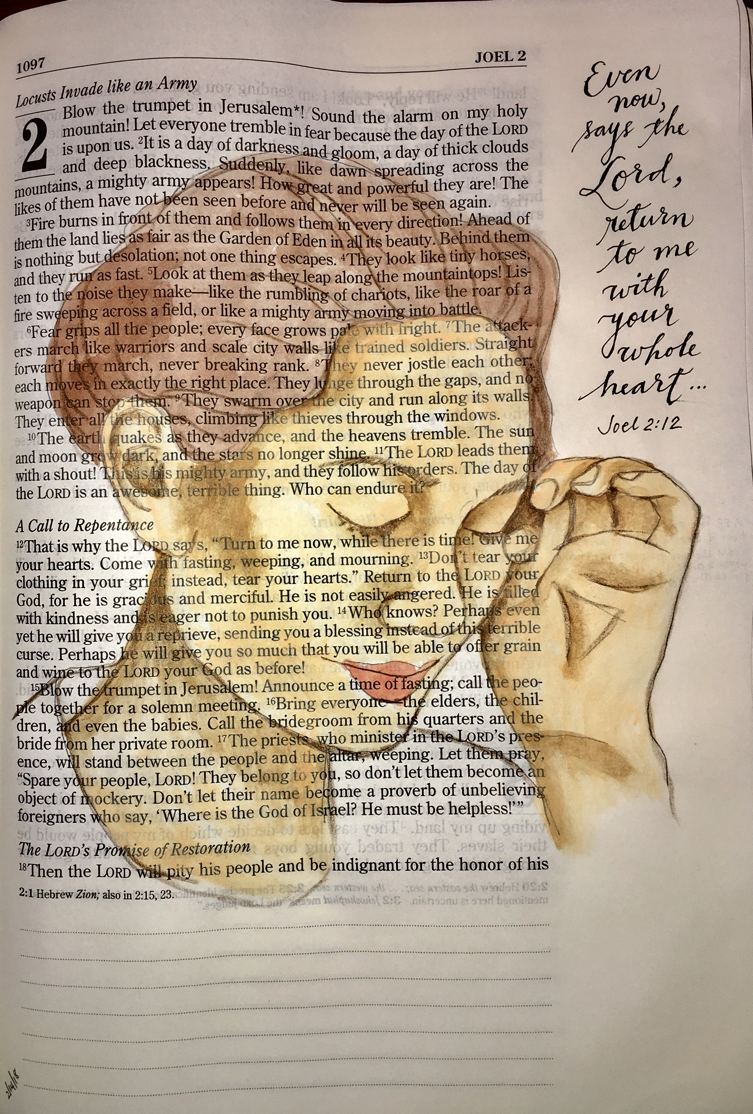 1097
JOEL 2
Locusts Invade like an Army
2 Blow the trumpet in Jerusalem*! Sound the alarm on my holy
mountain! Let everyone tremble in fear because the day of the LORD
is upon us. ²It is a day of darkness and gloom, a day of thick clouds
and deep blackness. Suddenly, like dawn spreading across the
mountains, a mighty army appears! How great and powerful they are! The
likes of them have not been seen before and never will be seen again.
³Fire burns in front of them and follows them in every direction! Ahead of
them the land lies as fair as the Garden of Eden in all its beauty. Behind them
is nothing but desolation; not one thing escapes. ⁴They look like tiny horses,
and they run as fast. ⁵Look at them as they leap along the mountaintops! Lis-
ten to the noise they make—like the rumbling of chariots, like the roar of a
fire sweeping across a field, or like a mighty army moving into battle.
⁶Fear grips all the people; every face grows pale with fright. ⁷The attack-
ers march like warriors and scale city walls like trained soldiers. Straight
forward they march, never breaking rank. ⁸They never jostle each other;
each moves in exactly the right place. They lunge through the gaps, and no
weapon can stop them. ⁹They swarm over the city and run along its walls.
They enter all the houses, climbing like thieves through the windows.
¹⁰The earth quakes as they advance, and the heavens tremble. The sun
and moon grow dark, and the stars no longer shine. ¹¹The LORD leads them
with a shout! This is his mighty army, and they follow his orders. The day of
the LORD is an awesome, terrible thing. Who can endure it?
A Call to Repentance
¹²That is why the LORD says, “Turn to me now, while there is time! Give me
your hearts. Come with fasting, weeping, and mourning. ¹³Don’t tear your
clothing in your grief; instead, tear your hearts.” Return to the LORD your
God, for he is gracious and merciful. He is not easily angered. He is filled
with kindness and is eager not to punish you. ¹⁴Who knows? Perhaps even
yet he will give you a reprieve, sending you a blessing instead of this terrible
curse. Perhaps he will give you so much that you will be able to offer grain
and wine to the LORD your God as before!
¹⁵Blow the trumpet in Jerusalem! Announce a time of fasting; call the peo-
ple together for a solemn meeting. ¹⁶Bring everyone—the elders, the chil-
dren, and even the babies. Call the bridegroom from his quarters and the
bride from her private room. ¹⁷The priests, who minister in the LORD’s pres-
ence, will stand between the people and the altar, weeping. Let them pray,
“Spare your people, LORD! They belong to you, so don’t let them become an
object of mockery. Don’t let their name become a proverb of unbelieving
foreigners who say, ‘Where is the God of Israel? He must be helpless!’”
The LORD’s Promise of Restoration
¹⁸Then the LORD will pity his people and be indignant for the honor of his
2:1 Hebrew Zion; also in 2:15, 23.
Even
now,
says the
Lord,
return
to me
with
your
whole
heart...
Joel 2:12